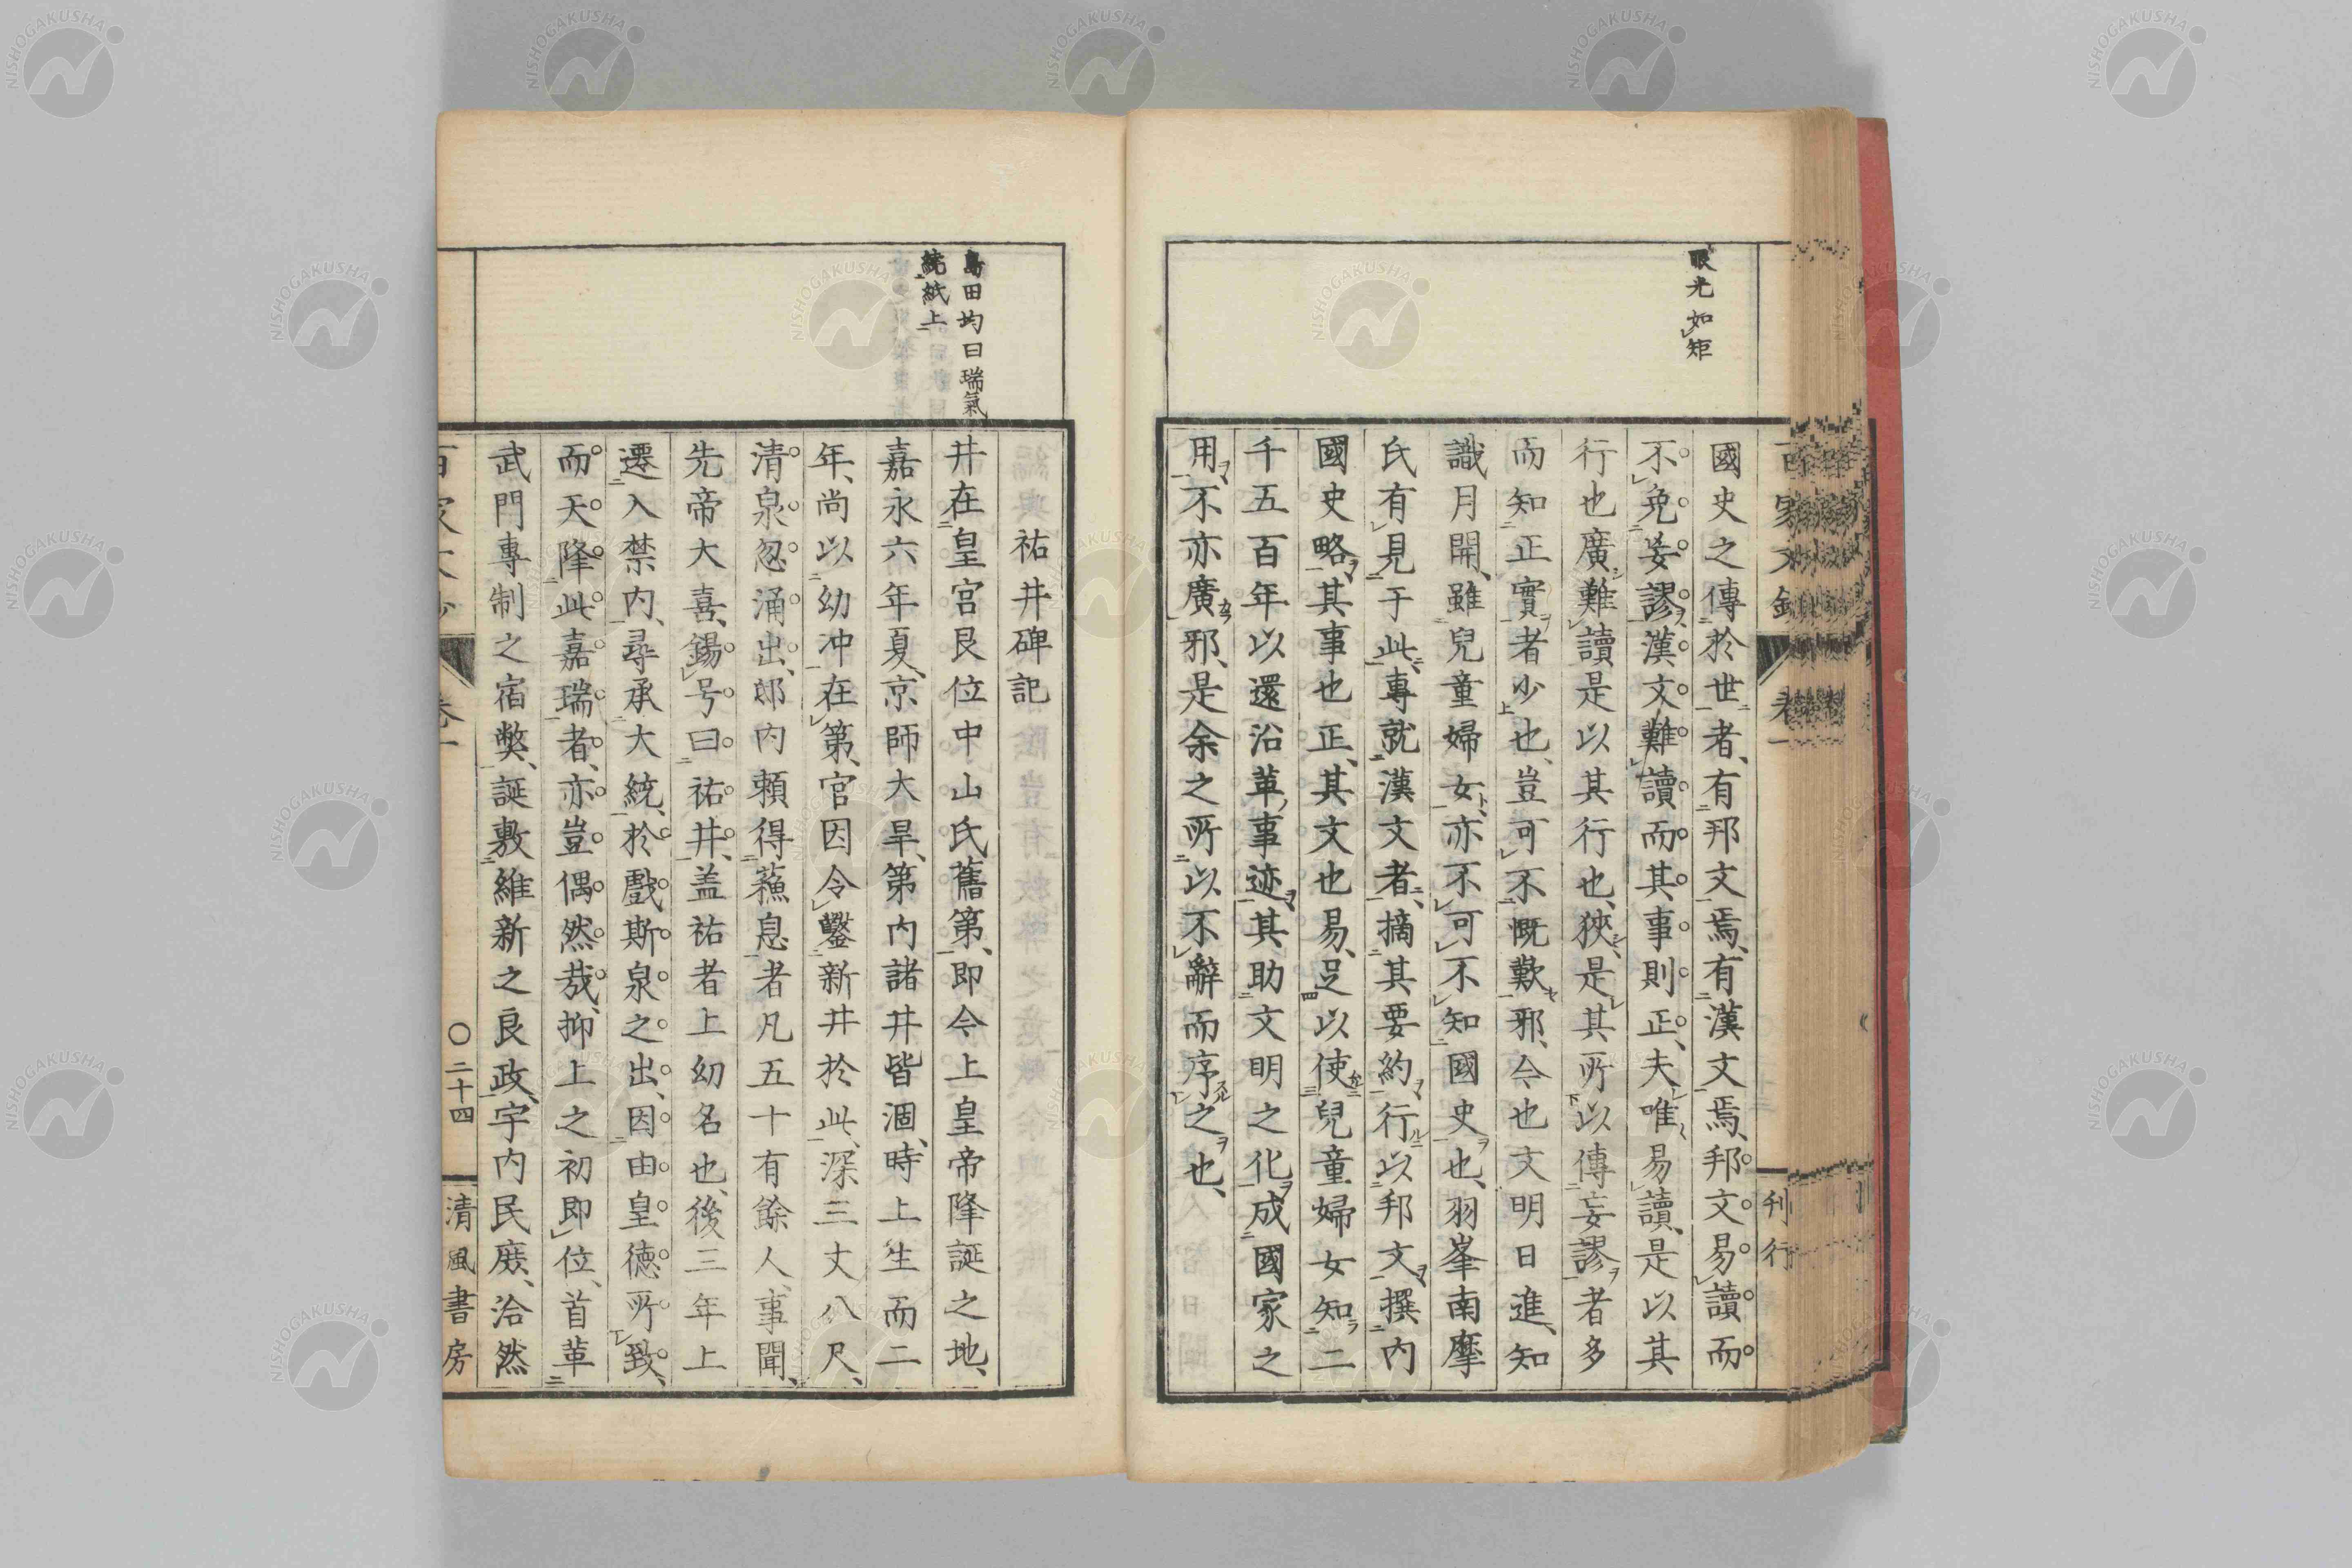 眼光如矩
國史之傳於世者、有邦文焉、有漢文焉、邦文易讀而
不免妄謬、漢文難讀而其事則正、夫唯易讀、是以其
行也廣、難讀是以其行也、狹、是其所以傳妄謬者多
而知正實者少也、豈可不慨歎邪、今也文明日進、知
識月開、雖兒童婦女、亦不可不知國史也、羽峯南摩
氏有見于此、專就漢文者、摘其要約行以邦文撰內
國史略、其事也正、其文也易、足以使兒童婦女知二
千五百年以還沿革事迹、其助文明之化、成國家之
用、不亦廣邪、是余之所以不辭而序之也、
刊行
島田均曰瑞氣
繞紙上
祐井碑記
井在皇宮艮位中山氏舊第、即今上皇帝降誕之地、
嘉永六年夏、京師大旱、第內諸井皆涸、時上生而二
年、尚以幼冲在第、官因令鑿新井於此、深三丈八尺、
清泉忽涌出、邸內賴得蘓息者凡五十有餘人、事聞、
先帝大喜、錫号曰祐井、盖祐者上幼名也、後三年上
遷入禁內、尋承大統、於戲斯泉之出、因由皇德所致、
而天降此嘉瑞者、亦豈偶然哉、抑上之初即位、首革
武門專制之宿弊、誕敷維新之良政、宇內民庶、洽然
卷一
〇二十四
清風書房
NISHOGAKUSHA